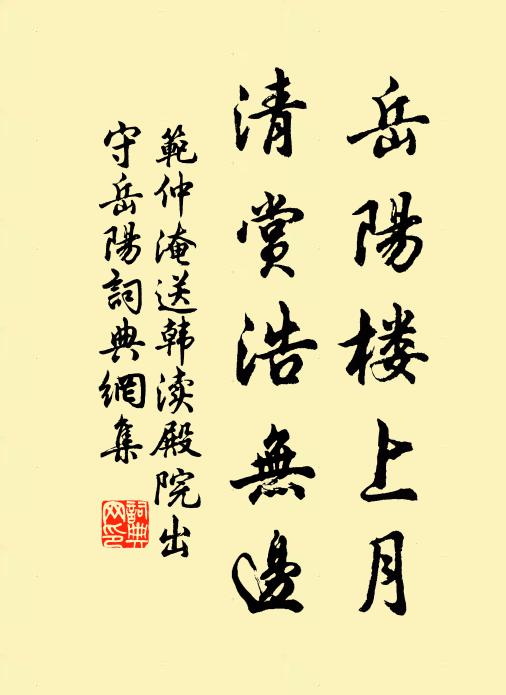 岳陽楼上月
清賞浩無邊
範仲淹送韩渎殿院出
守岳陽詞典網集
詞典
网印